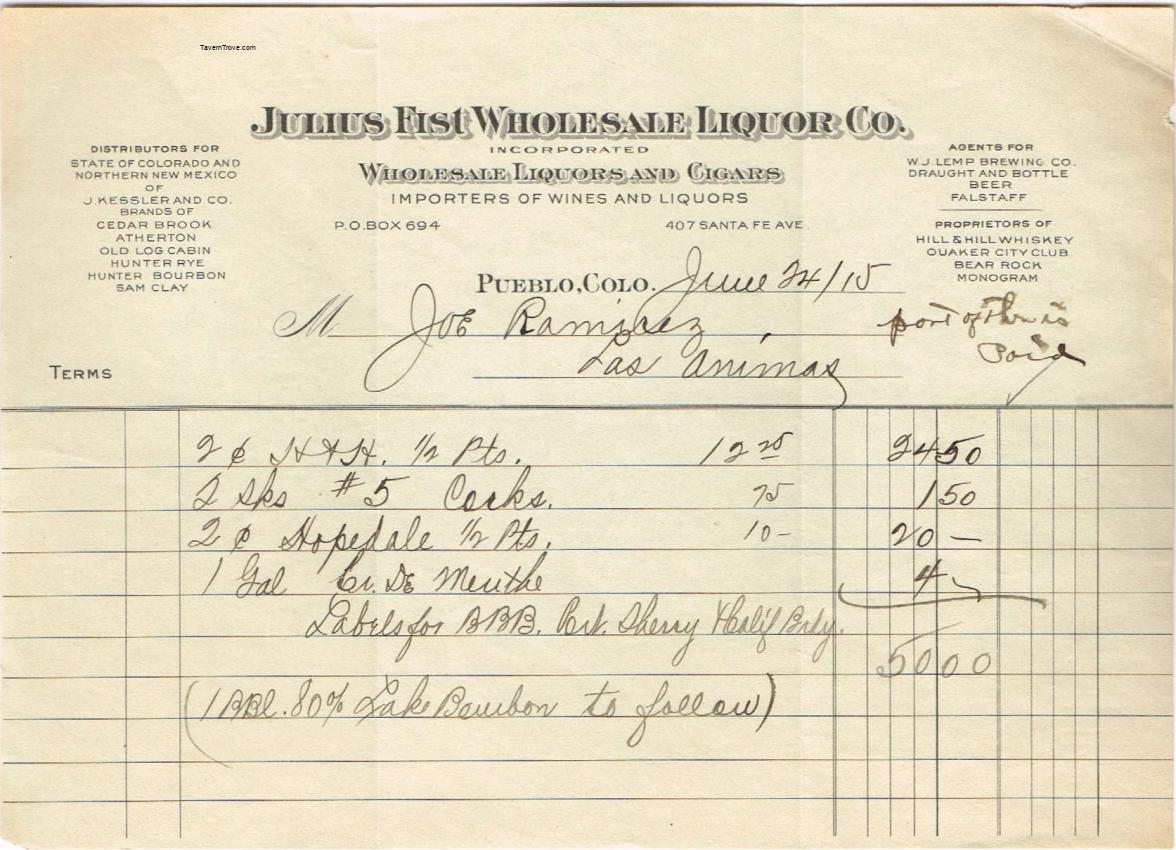 TavernTrove.com
JULIUS FIST WHOLESALE LIQUOR CO.
INCORPORATED
WHOLESALE LIQUORS AND CIGARS
IMPORTERS OF WINES AND LIQUORS
P.O.BOX 694
407 SANTA FE AVE.
DISTRIBUTORS FOR
STATE OF COLORADO AND
NORTHERN NEW MEXICO
OF
J. KESSLER AND CO.
BRANDS OF
CEDAR BROOK
ATHERTON
OLD LOG CABIN
HUNTER RYE
HUNTER BOURBON
SAM CLAY
AGENTS FOR
W.J LEMP BREWING CO.
DRAUGHT AND BOTTLE
BEER
FALSTAFF
PROPRIETORS OF
HILL & HILL WHISKEY
QUAKER CITY CLUB
BEAR ROCK
MONOGRAM
PUEBLO, COLO. June 24/15
M Joe Ramirez,
Las Animas
part of this is
Paid
TERMS
2 ¢ H & H. 1/2 Pts. 12 25 24 50
2 sks #5 Corks. 75 1 50
2 ¢ Hopedale 1/2 Pts. 10 – 20 –
1 Gal Cr. De Menthe 4 –
Labels for BBB. Port. Sherry & Calif Brdy.
50 00
(1 BBl. 80% Lake Bourbon to follow)